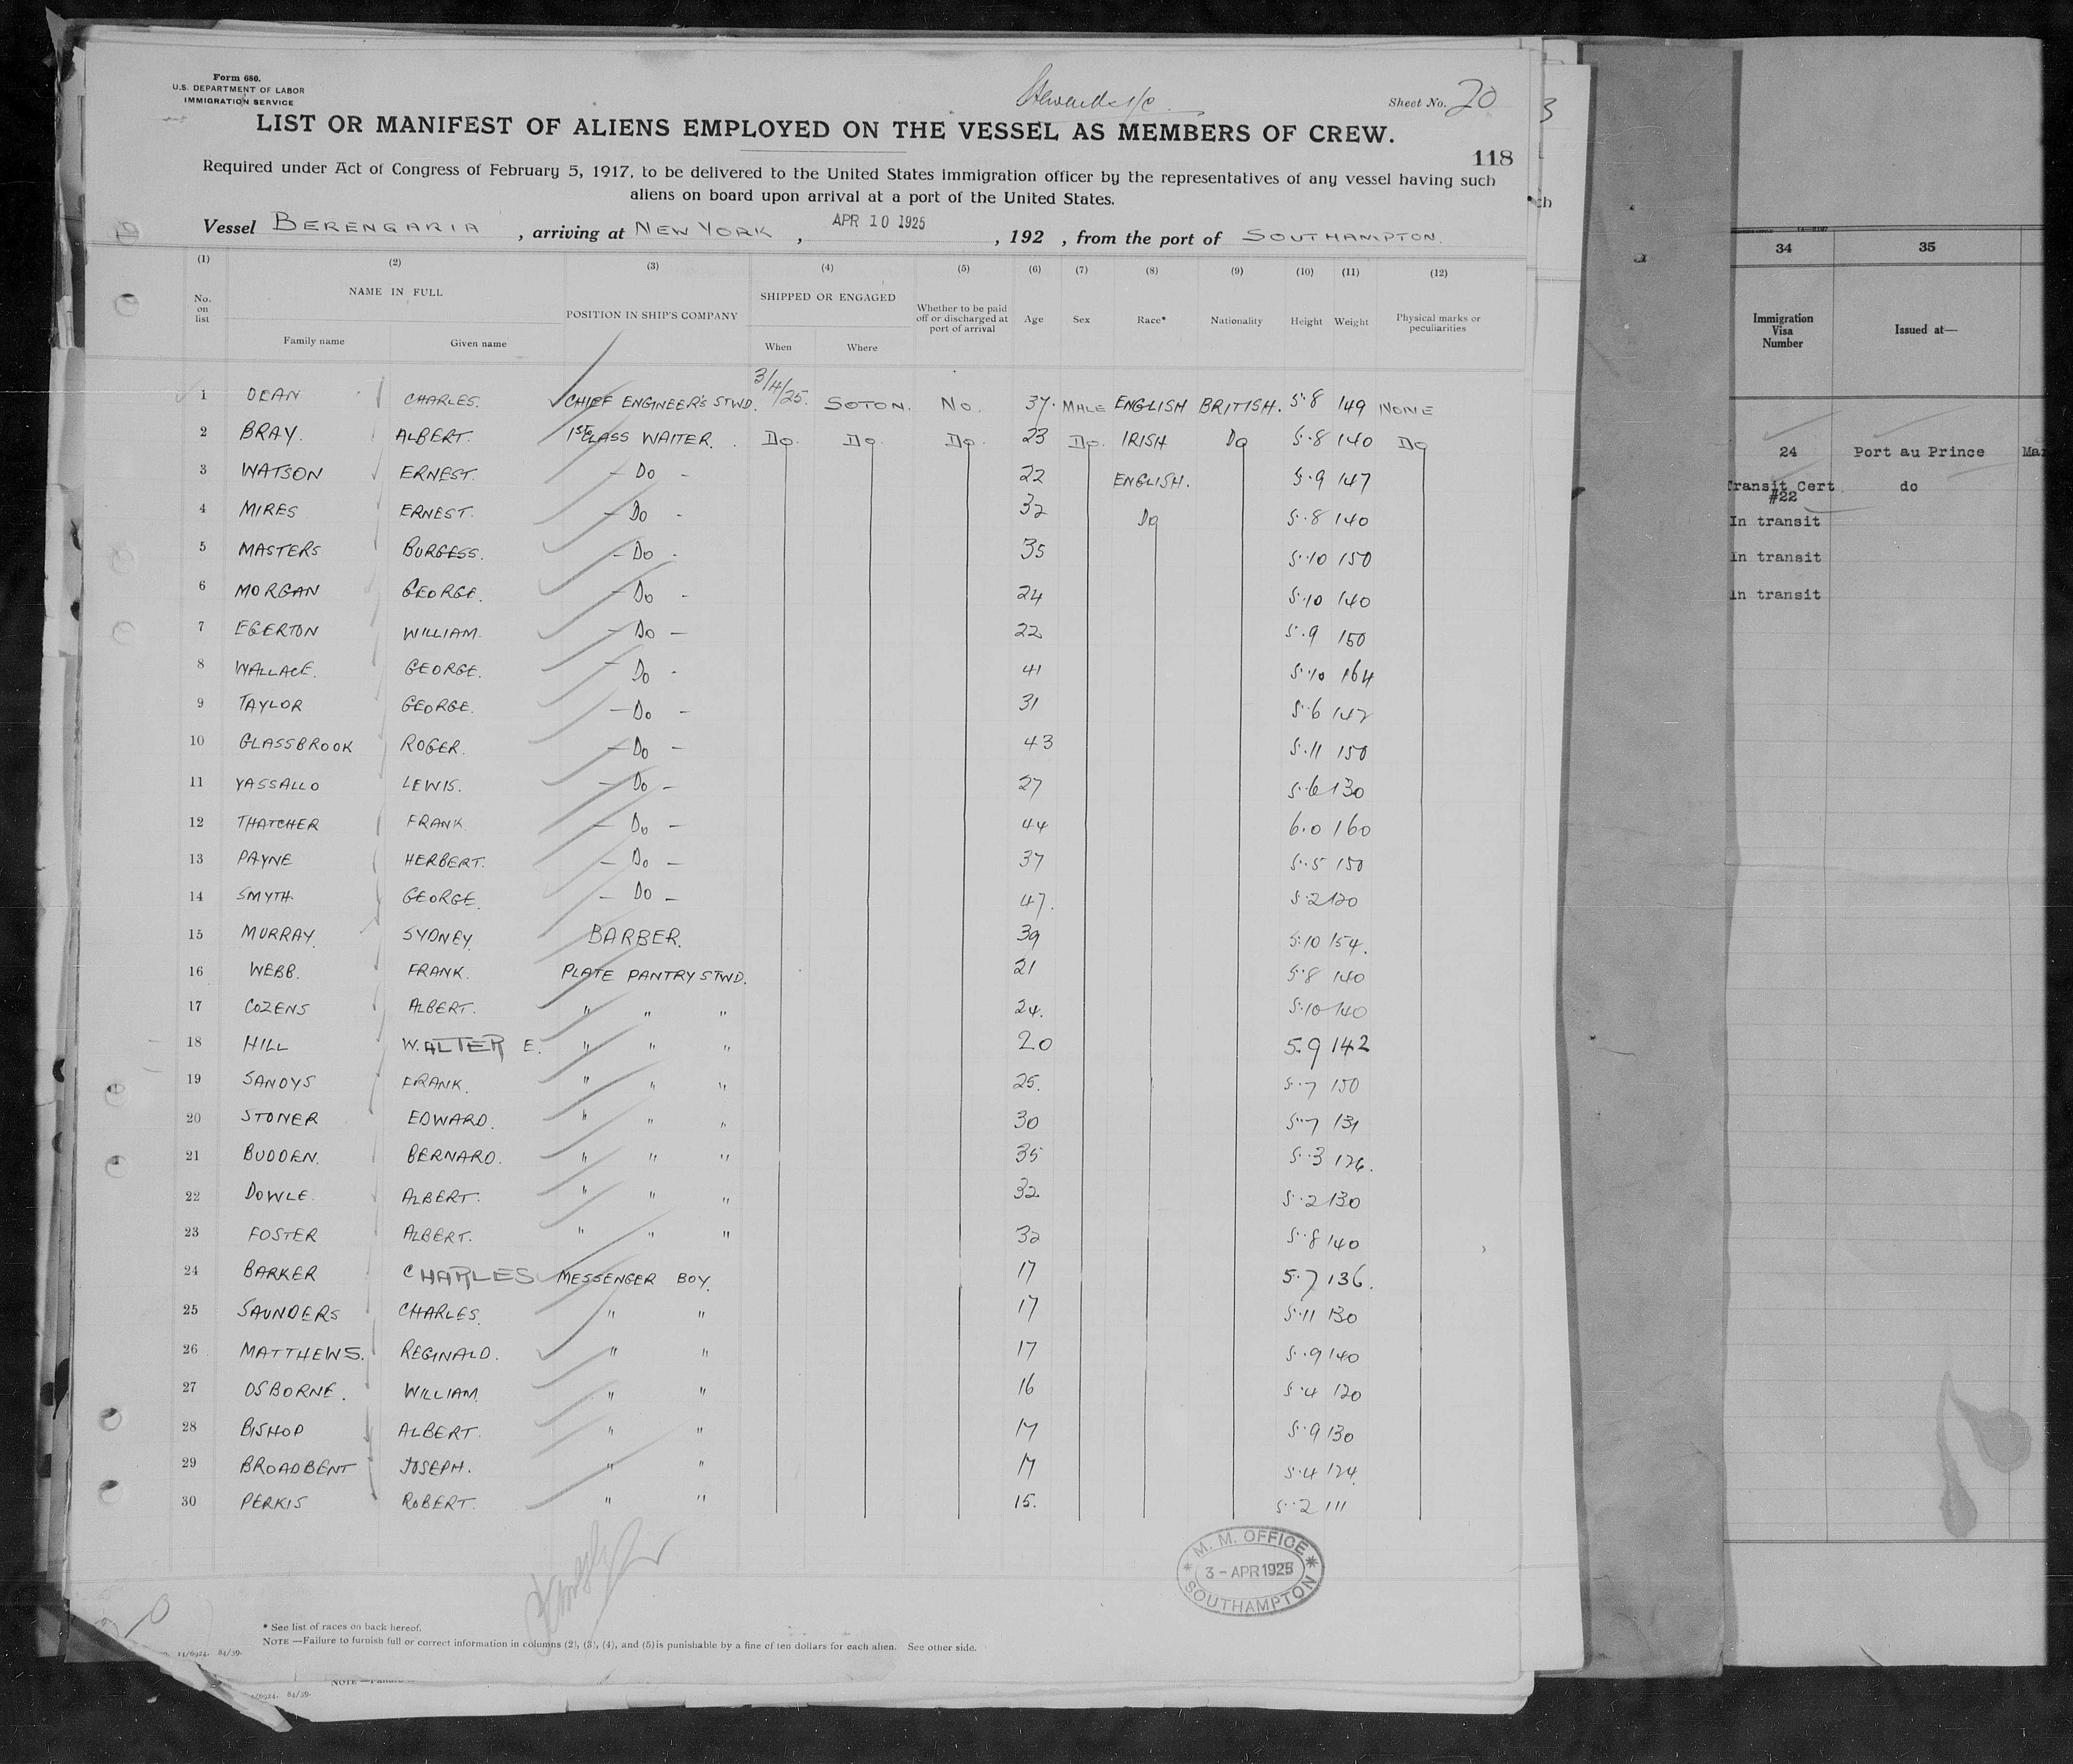 Form 680.
U.S. DEPARTMENT OF LABOR
IMMIGRATION SERVICE
Sheet No. 20
LIST OR MANIFEST OF ALIENS EMPLOYED ON THE VESSEL AS MEMBERS OF CREW.
118
Required under Act of Congress of February 5, 1917, to be delivered to the United States immigration officer by the representatives of any vessel having such
aliens on board upon arrival at a port of the United States.
Vessel BERENGARIA , arriving at NEW YORK , APR 10 1925 , 192 , from the port of SOUTHAMPTON.
(1) (2) (3) (4) (5) (6) (7) (8) (9) (10) (11) (12)
No. on list NAME IN FULL POSITION IN SHIP'S COMPANY SHIPPED OR ENGAGED Whether to be paid off or discharged at port of arrival Age Sex Race* Nationality Height Weight Physical marks or peculiarities
Family name Given name When Where
1 DEAN CHARLES. CHIEF ENGINEER'S STWD. 3/4/25. SOTON. NO. 37. MALE ENGLISH BRITISH. 5.8 149 NONE
2 BRAY. ALBERT. 1ST CLASS WAITER. Do. Do. Do. 23 Do. IRISH Do 5.8 140 Do
3 WATSON ERNEST. - Do - 22 ENGLISH. 5.9 147
4 MIRES ERNEST. - Do - 32 Do 5.8 140
5 MASTERS BURGESS. - Do - 35 5.10 150
6 MORGAN GEORGE. - Do - 24 5.10 140
7 EGERTON WILLIAM. - Do - 22 5.9 150
8 WALLACE. GEORGE. - Do - 41 5.10 164
9 TAYLOR GEORGE. - Do - 31 5.6 142
10 GLASSBROOK ROGER. - Do - 43 5.11 150
11 YASSALLO LEWIS. - Do - 27 5.6 130
12 THATCHER FRANK. - Do - 44 6.0 160
13 PAYNE HERBERT. - Do - 37 5.5 150
14 SMYTH. GEORGE. - Do - 47. 5.2 120
15 MURRAY. SYDNEY. BARBER. 39 5.10 154.
16 WEBB. FRANK. PLATE PANTRY STWD. 21 5.8 140
17 COZENS ALBERT. " " " 24. 5.10 140
18 HILL WALTER E. " " " 20 5.9 142
19 SANDYS FRANK. " " " 25. 5.7 150
20 STONER EDWARD. " " " 30 5.7 131
21 BUDDEN. BERNARD. " " " 35 5.3 126.
22 DOWLE. ALBERT. " " " 32. 5.2 130
23 FOSTER ALBERT. " " " 32 5.8 140
24 BARKER CHARLES MESSENGER BOY. 17 5.7 136.
25 SAUNDERS CHARLES. " " 17 5.11 130
26 MATTHEWS. REGINALD. " " 17 5.9 140
27 OSBORNE. WILLIAM. " " 16 5.4 120
28 BISHOP ALBERT. " " 17 5.9 130
29 BROADBENT JOSEPH. " " 17 5.4 124.
30 PERKIS ROBERT. " " 15. 5.2 111
M. M. OFFICE
3 - APR 1925
SOUTHAMPTON
* See list of races on back hereof.
NOTE —Failure to furnish full or correct information in columns (2), (3), (4), and (5) is punishable by a fine of ten dollars for each alien. See other side.
11/6924. 84/39.
84/39.
3
ch
34 35
Immigration Visa Number Issued at—
24 Port au Prince
Transit Cert #22 do
In transit
In transit
In transit